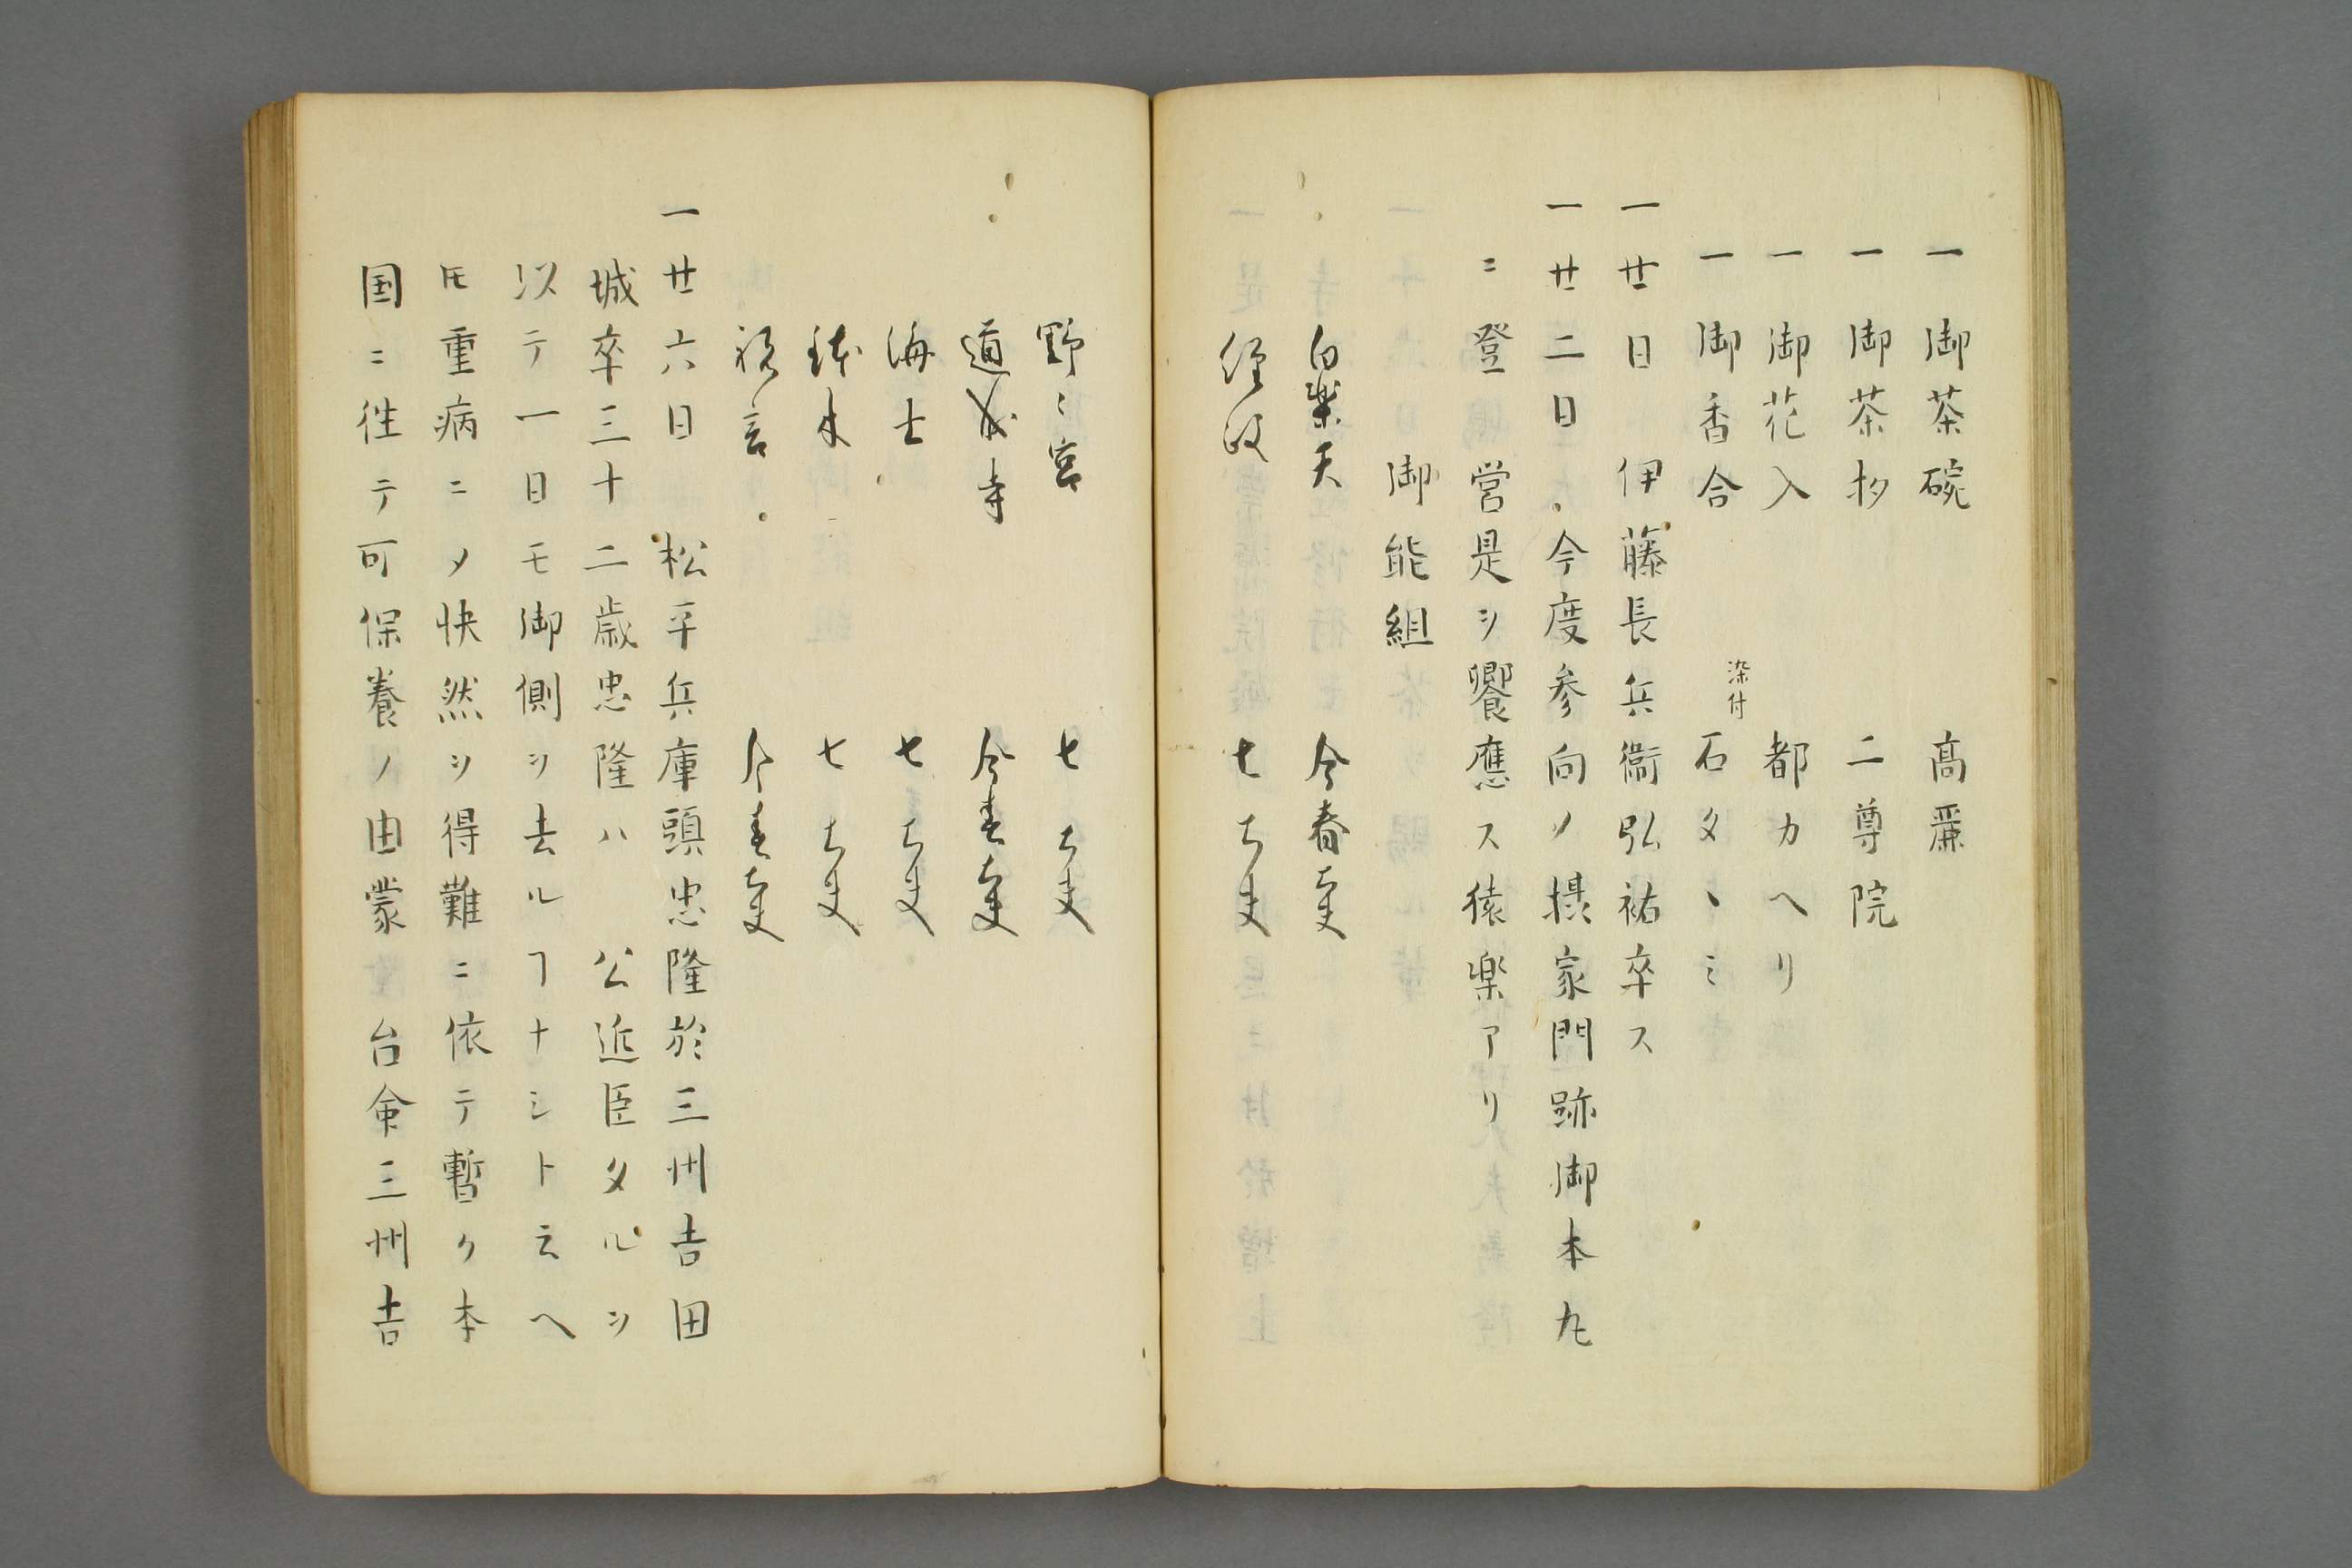 一御茶碗　高麗
一御茶杓　二尊院
一御花入　都カヘリ
一御香合　染付石タヽミ
一廿日　伊藤長兵衞弘祐卒ス
一廿二日　今度参向ノ摂家門跡御本丸
ニ登営是ヲ饗應ス猿楽アリ
御能組
白楽天　今春大夫
経政　七大夫
野々宮　七大夫
道成寺　今春大夫
海士　七大夫
鉢木　七大夫
祝言　今春大夫
一廿六日　松平兵庫頭忠隆於三州吉田
城卒三十二歳忠隆ハ　公近臣タルヲ
以テ一日モ御側ヲ去ルヿナシト云ヘ
𪜈重病ニ〆快然ヲ得難ニ依テ暫ク本
国ニ往テ可保養ノ由蒙　台命三州吉